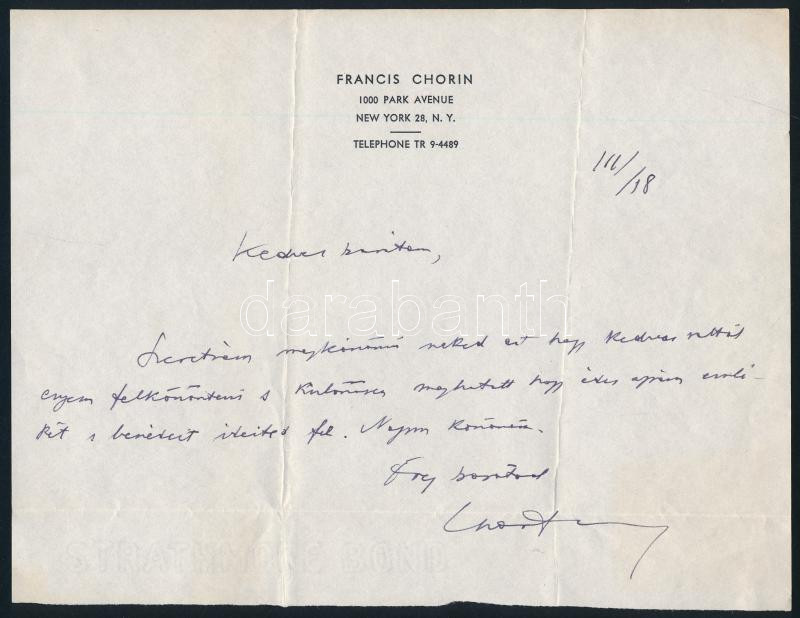 FRANCIS CHORIN
1000 PARK AVENUE
NEW YORK 28, N. Y.
TELEPHONE TR 9-4489
III/18
Kedves barátom,
Szeretném megköszönni neked azt hogy kedves voltál
engem felköszönteni s különösen meghatott hogy édes apám emlé-
két s beszédeit idézted fel. Nagyon köszönöm.
Öreg barátod
Chorin
darabanth
STRATHMORE BOND